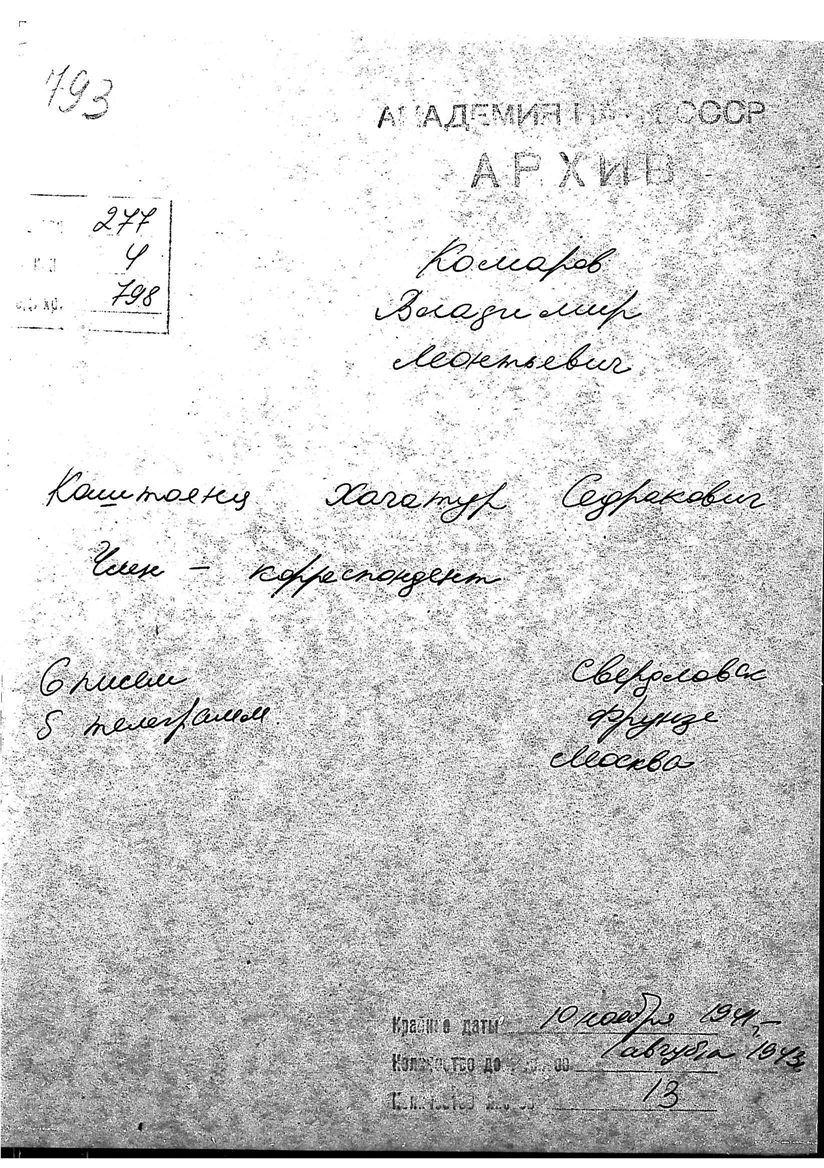 793
АКАДЕМИЯ НАУК СССР
АРХИВ
277
4
798
Комаров
Владимир
Леонтьевич
Коштоянц Хачатур Седракович
Член - корреспондент
6 писем
5 телеграмм.
Свердловск
Фрунзе
Москва
Крайние даты 10 ноября 1941,-
Количество до 1 августа 1943
Количество 13